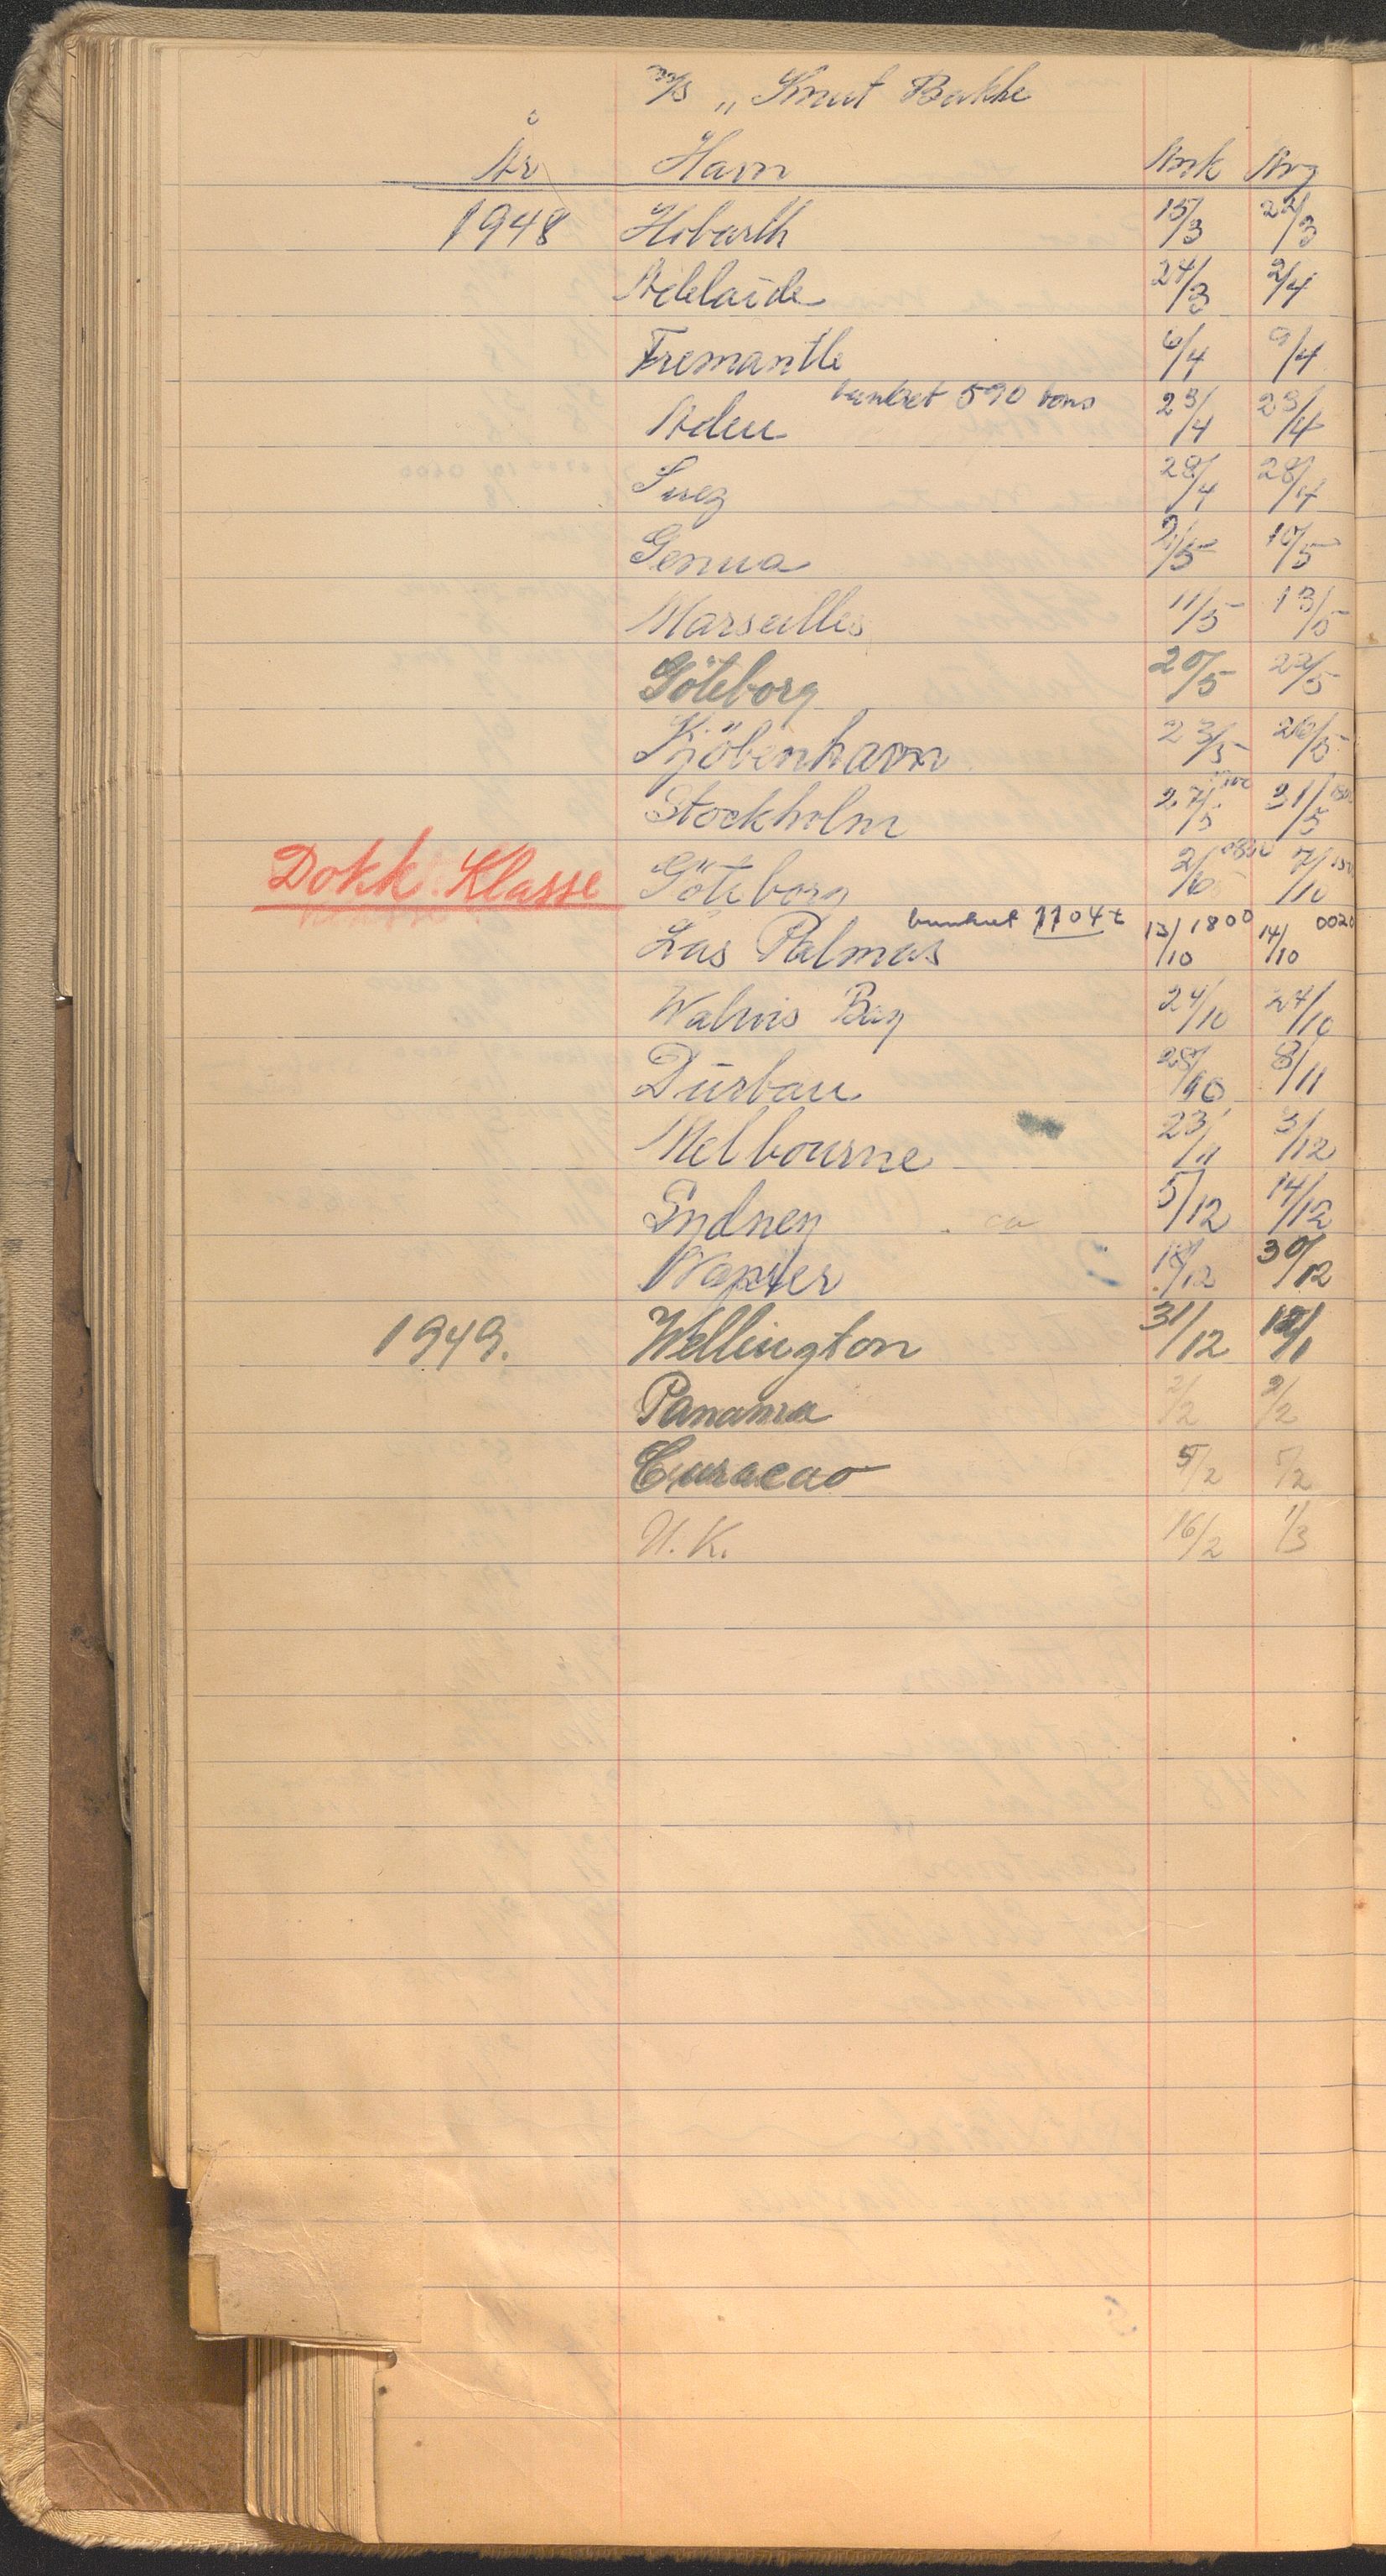 m/s „Knut Bakke
År Havn Ank Avg
1948 Hobarth 15/3 22/3
Adelaide 24/3 2/4
Fremantle 6/4 9/4
Aden bunkret 590 tons 23/4 23/4
Suez 28/4 28/4
Genua 2/5 10/5
Marseilles 11/5 13/5
Göteborg 20/5 22/5
Kjöbenhavn 23/5 26/5
Stockholm 27/5 31/5
Dokk. Klasse Göteborg 2/6 0800 7/10
Las Palmas bunkret 1104 t 13/10 1800 14/10 0020
Walvis Bay 24/10 24/10
Durban 28/10 8/11
Melbourne 23/11 3/12
Sydney ca 5/12 14/12
Napier 18/12 30/12
1949. Wellington 31/12
Panama 2/2 2/2
Curacao 5/2 5/2
U.K. 16/2 1/3